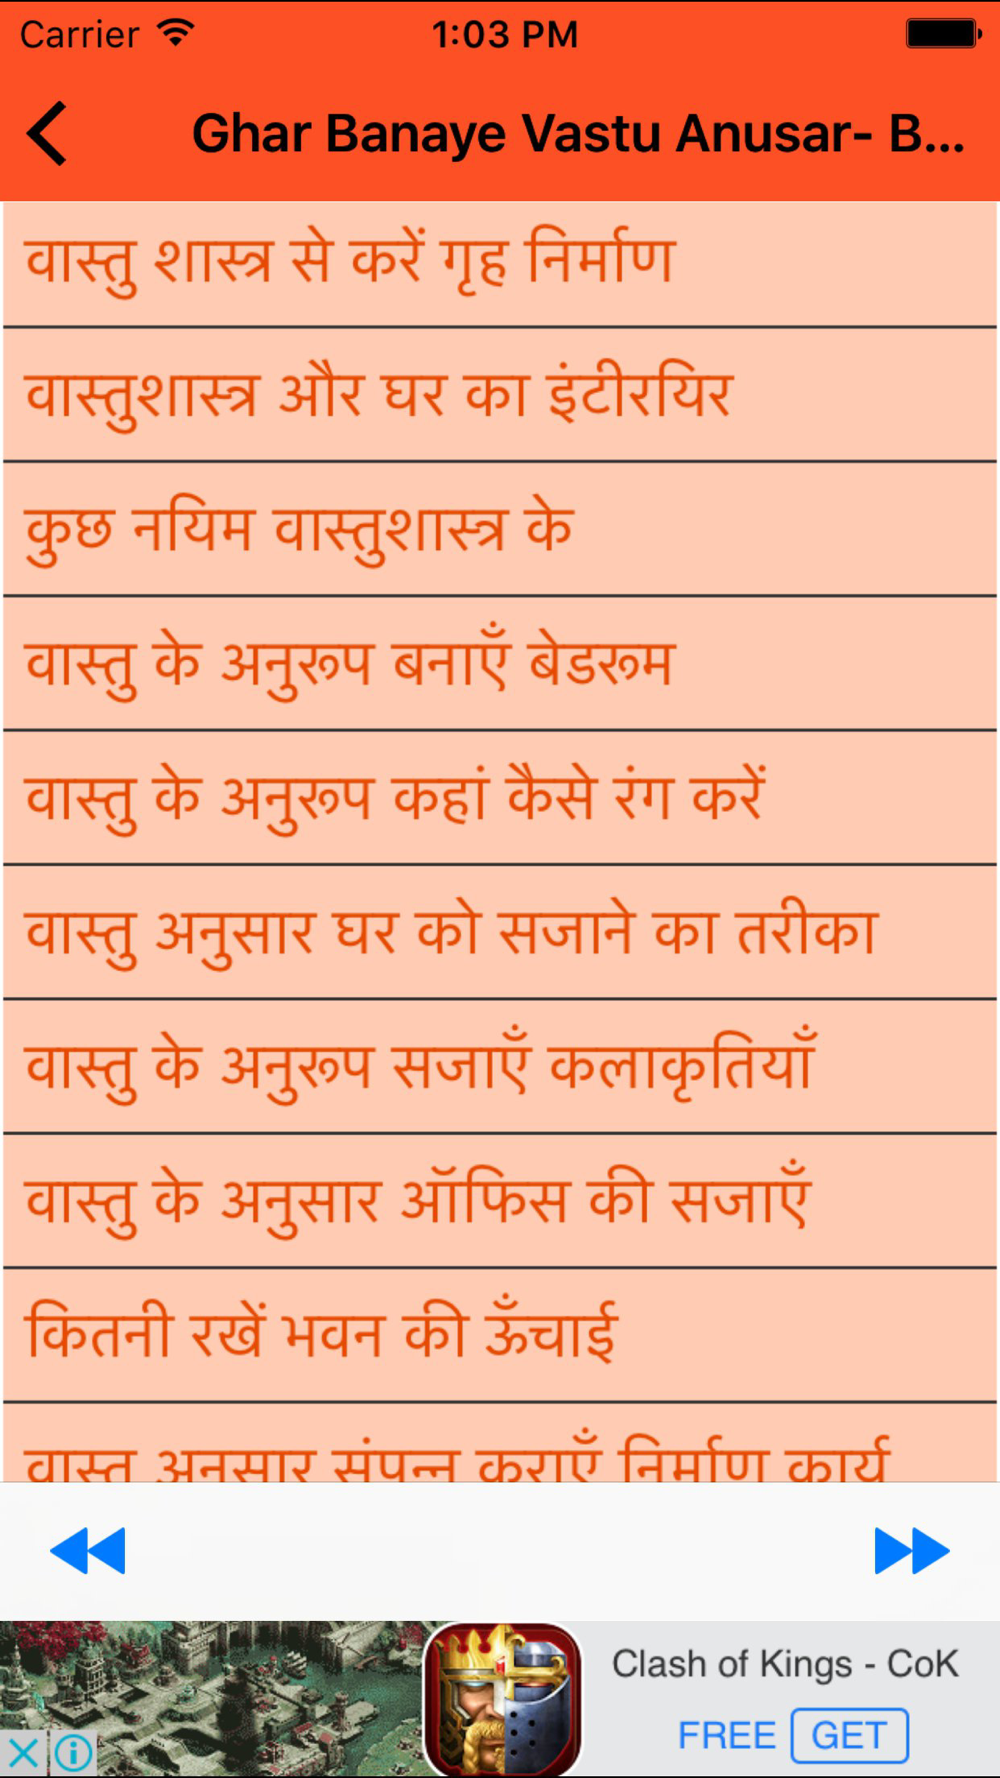 Carrier 1:03 PM
Ghar Banaye Vastu Anusar- B...
वास्तु शास्त्र से करें गृह निर्माण
वास्तुशास्त्र और घर का इंटीरयिर
कुछ नयिम वास्तुशास्त्र के
वास्तु के अनुरूप बनाएँ बेडरूम
वास्तु के अनुरूप कहां कैसे रंग करें
वास्तु अनुसार घर को सजाने का तरीका
वास्तु के अनुरूप सजाएँ कलाकृतियाँ
वास्तु के अनुसार ऑफिस की सजाएँ
कितनी रखें भवन की ऊँचाई
वास्तु अनुसार संपन्न कराएँ निर्माण कार्य
Clash of Kings - CoK
FREE GET